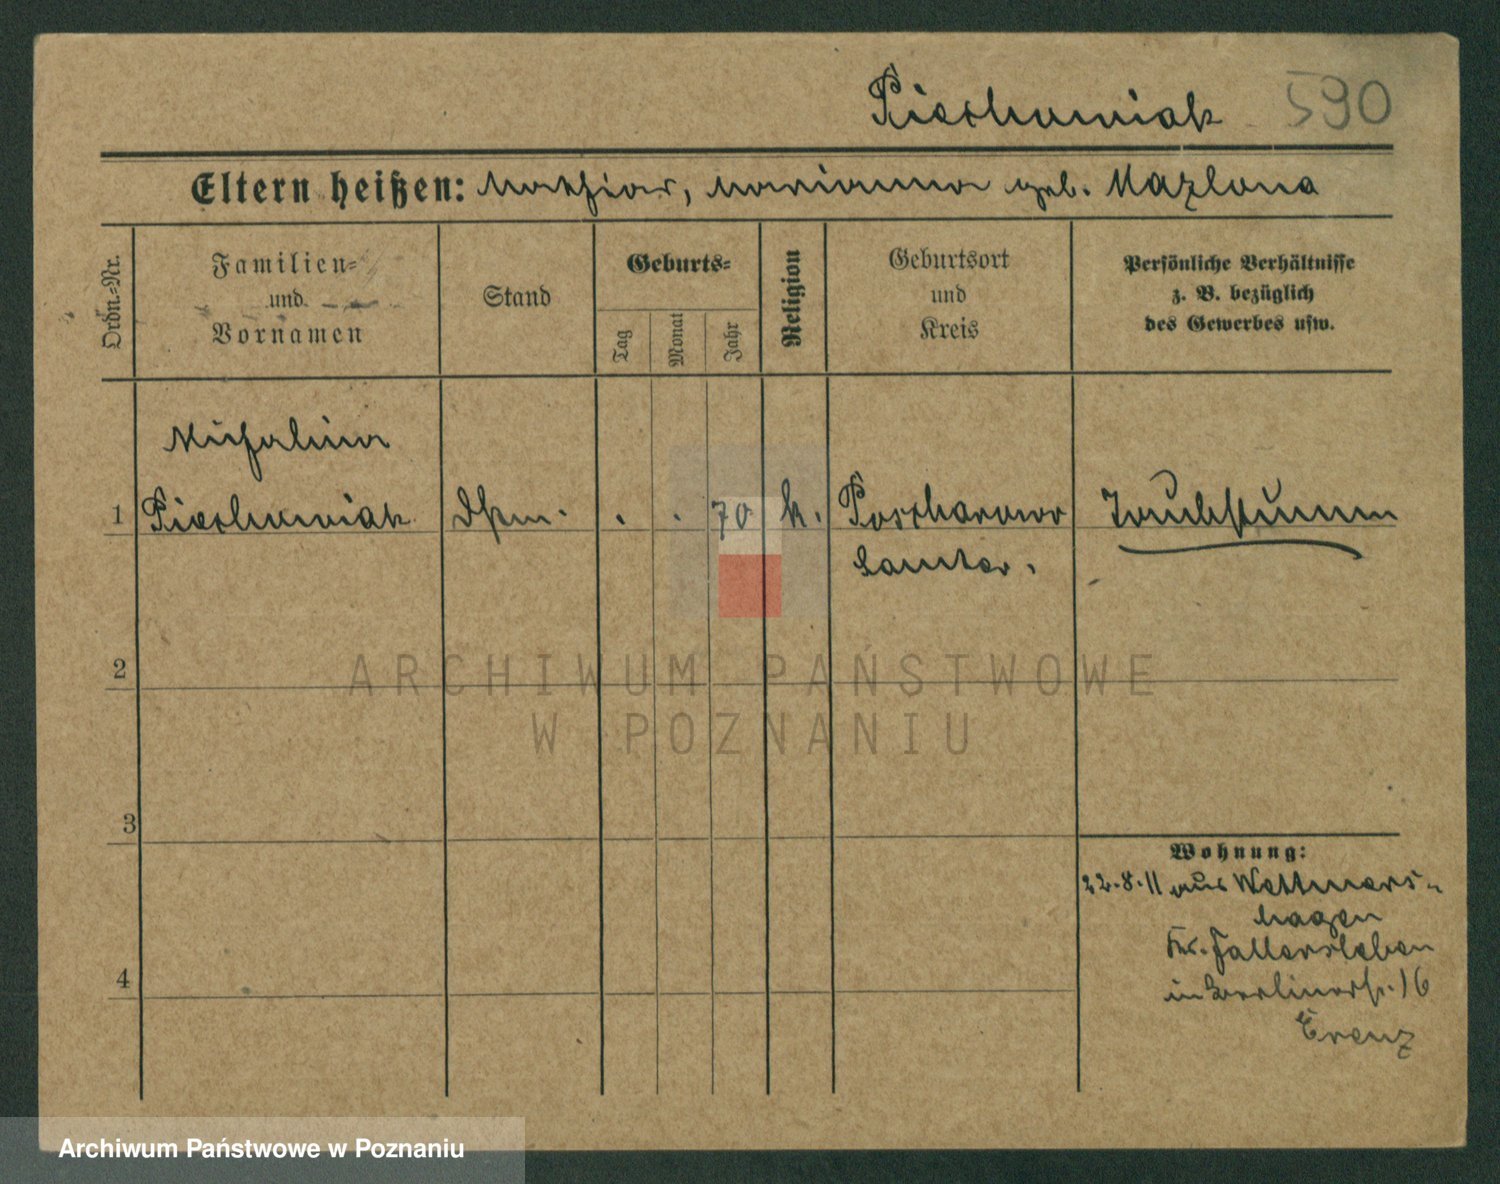 Piechowiak 590
Eltern heißen: Mathias, Marianna geb. Mazlona
Ordn.-Nr.
Familien-
und
Vornamen
Stand
Geburts-
Tag
Monat
Jahr
Religion
Geburtsort
und
Kreis
Persönliche Verhältnisse
z. B. bezüglich
des Gewerbes usw.
Michalina
1 Piechowiak . . 70 k. Taubstumm
Samter.
2
3
4
Wohnung:
22.8.11 aus Wettmars-
hagen
Kr. Fallersleben
in Berlinerstr. 16
ARCHIWUM PAŃSTWOWE
W POZNANIU
Archiwum Państwowe w Poznaniu